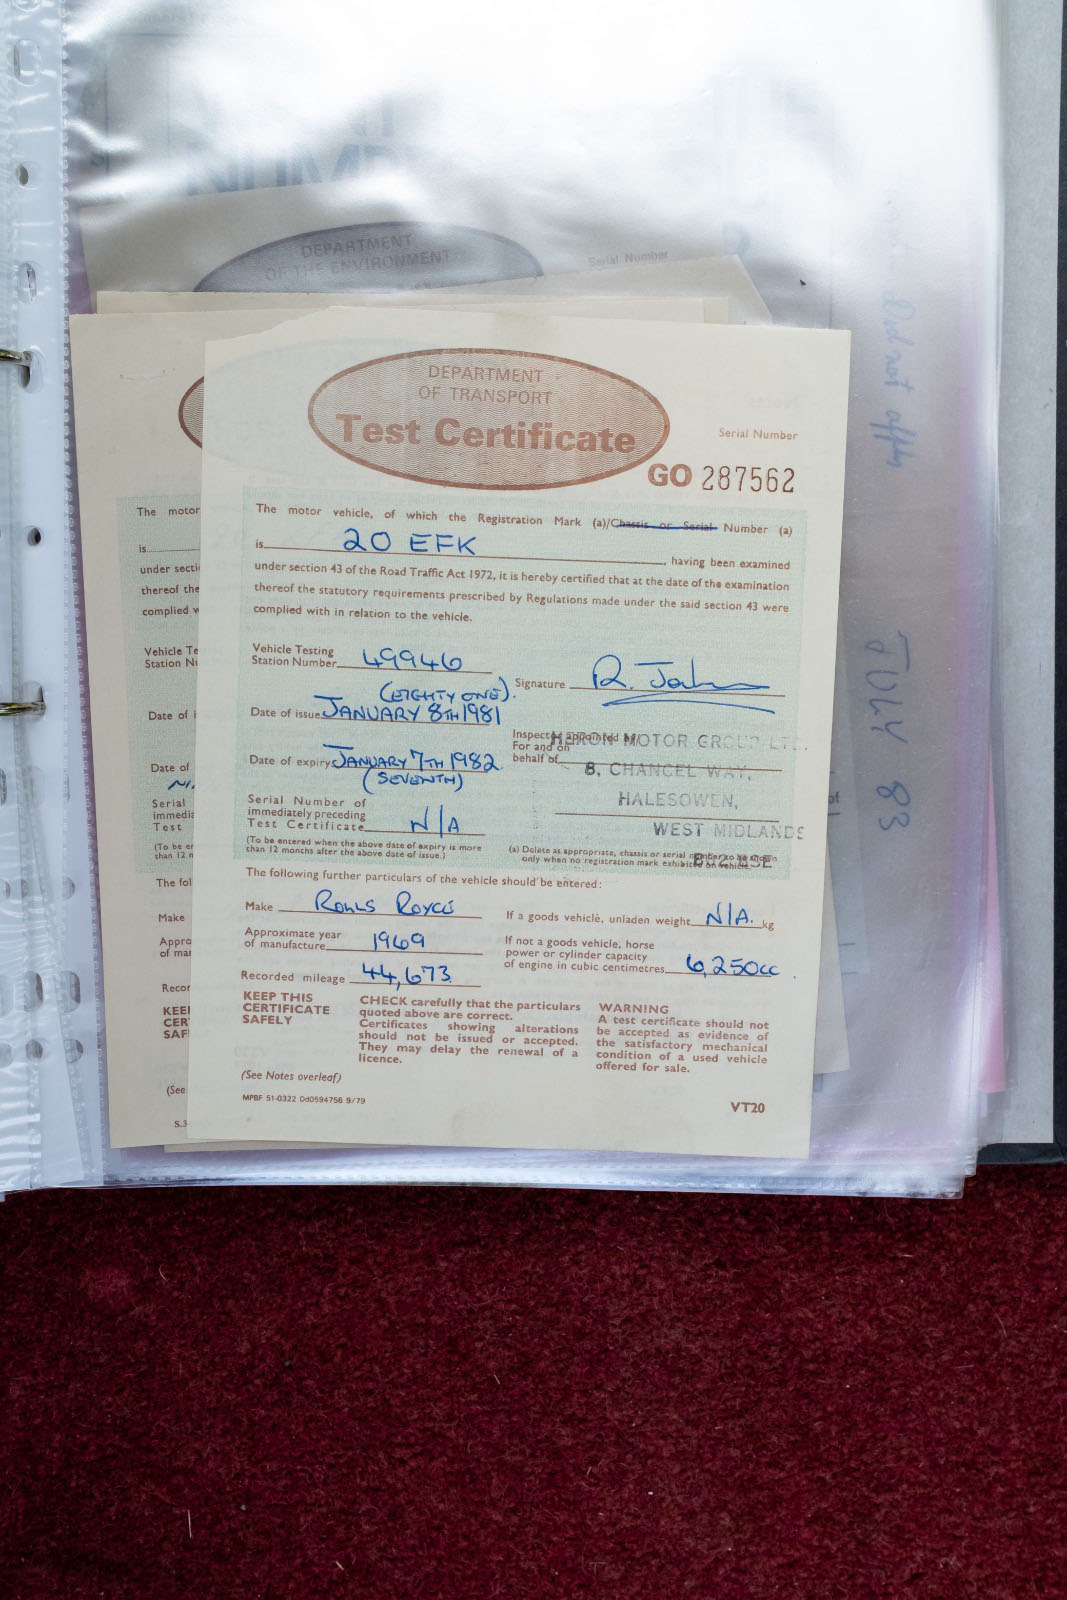 DEPARTMENT
OF THE ENVIRONMENT
Serial Number
DEPARTMENT
OF TRANSPORT
Test Certificate
Serial Number
GO 287562
The motor vehicle, of which the Registration Mark (a)/Chassis or Serial Number (a)
is 20 EFK, having been examined
under section 43 of the Road Traffic Act 1972, it is hereby certified that at the date of the examination
thereof the statutory requirements prescribed by Regulations made under the said section 43 were
complied with in relation to the vehicle.
Vehicle Testing
Station Number 49946
Signature
(EIGHTY ONE).
Date of issue JANUARY 8TH 1981
Inspector appointed by
For and on
behalf of
HERON MOTOR GROUP LTD.
8, CHANCEL WAY,
HALESOWEN,
WEST MIDLANDS
Date of expiry JANUARY 7TH 1982
(SEVENTH)
Serial Number of
immediately preceding
Test Certificate N/A
(To be entered when the above date of expiry is more
than 12 months after the above date of issue.)
(a) Delete as appropriate, chassis or serial number to be shown
only when no registration mark exhibited on vehicle.
The following further particulars of the vehicle should be entered:
Make ROLLS ROYCE
If a goods vehicle, unladen weight N/A. kg
Approximate year
of manufacture 1969
If not a goods vehicle, horse
power or cylinder capacity
of engine in cubic centimetres 6,250cc
Recorded mileage 44,673
KEEP THIS
CERTIFICATE
SAFELY
CHECK carefully that the particulars
quoted above are correct.
Certificates showing alterations
should not be issued or accepted.
They may delay the renewal of a
licence.
WARNING
A test certificate should not
be accepted as evidence of
the satisfactory mechanical
condition of a used vehicle
offered for sale.
(See Notes overleaf)
MPBF 51-0322 Dd0594756 9/79
VT20
The motor
is
under secti
thereof the
complied w
Vehicle Te
Station Nu
Date of i
Date of
Serial
immedia
Test
(To be er
than 12 n
The fol
Make
Appro
of mar
Recor
KEEP
CER
SAF
(See
S.3
of
JULY 83